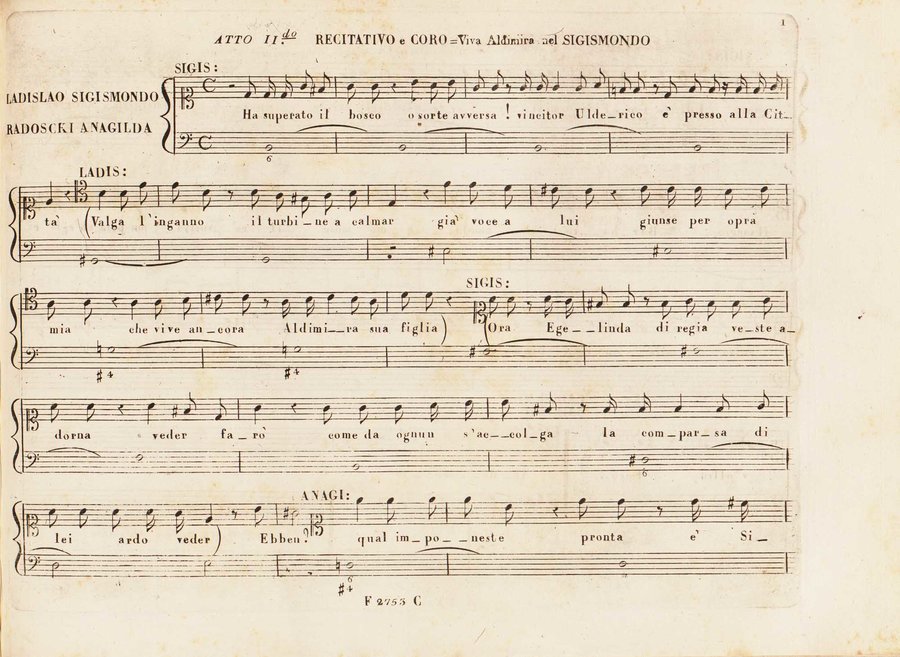 1
ATTO II.do RECITATIVO e CORO = Viva Aldimira nel SIGISMONDO
SIGIS:
LADISLAO SIGISMONDO
RADOSCKI ANAGILDA
Ha superato il bosco o sorte avversa ! vincitor Ulde_rico è presso alla Cit_
6
LADIS:
tà (Valga l'inganno il turbi_ne a calmar già voce a lui giunse per opra
SIGIS:
mia che vive an_cora Aldimi_ra sua figlia) Ora Ege_linda di regia ve_ste a_
#4 #4
dorna veder fa_rò come da ognun s'ac_col_ga la com_par_sa di
6
ANAGI:
lei ardo veder) Ebben? qual im_po_neste pronta è Si_
6
#4
F 2753 C